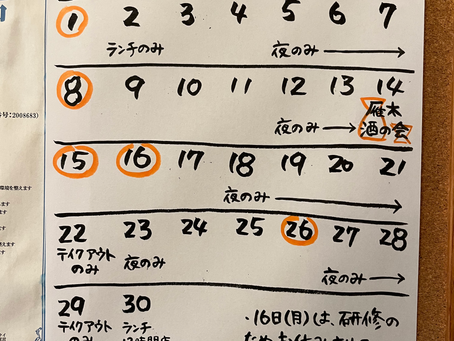 1 2 3 4 5 6 7
ランチのみ 夜のみ →
8 9 10 11 12 13 14
夜のみ → 雁木
酒の会
号:2008683)
15 16 17 18 19 20 21
夜のみ →
22 23 24 25 26 27 28
テイクアウト
のみ 夜のみ 夜のみ →
29 30
テイクアウト ランチ
のみ
・16日(月)は、研修の